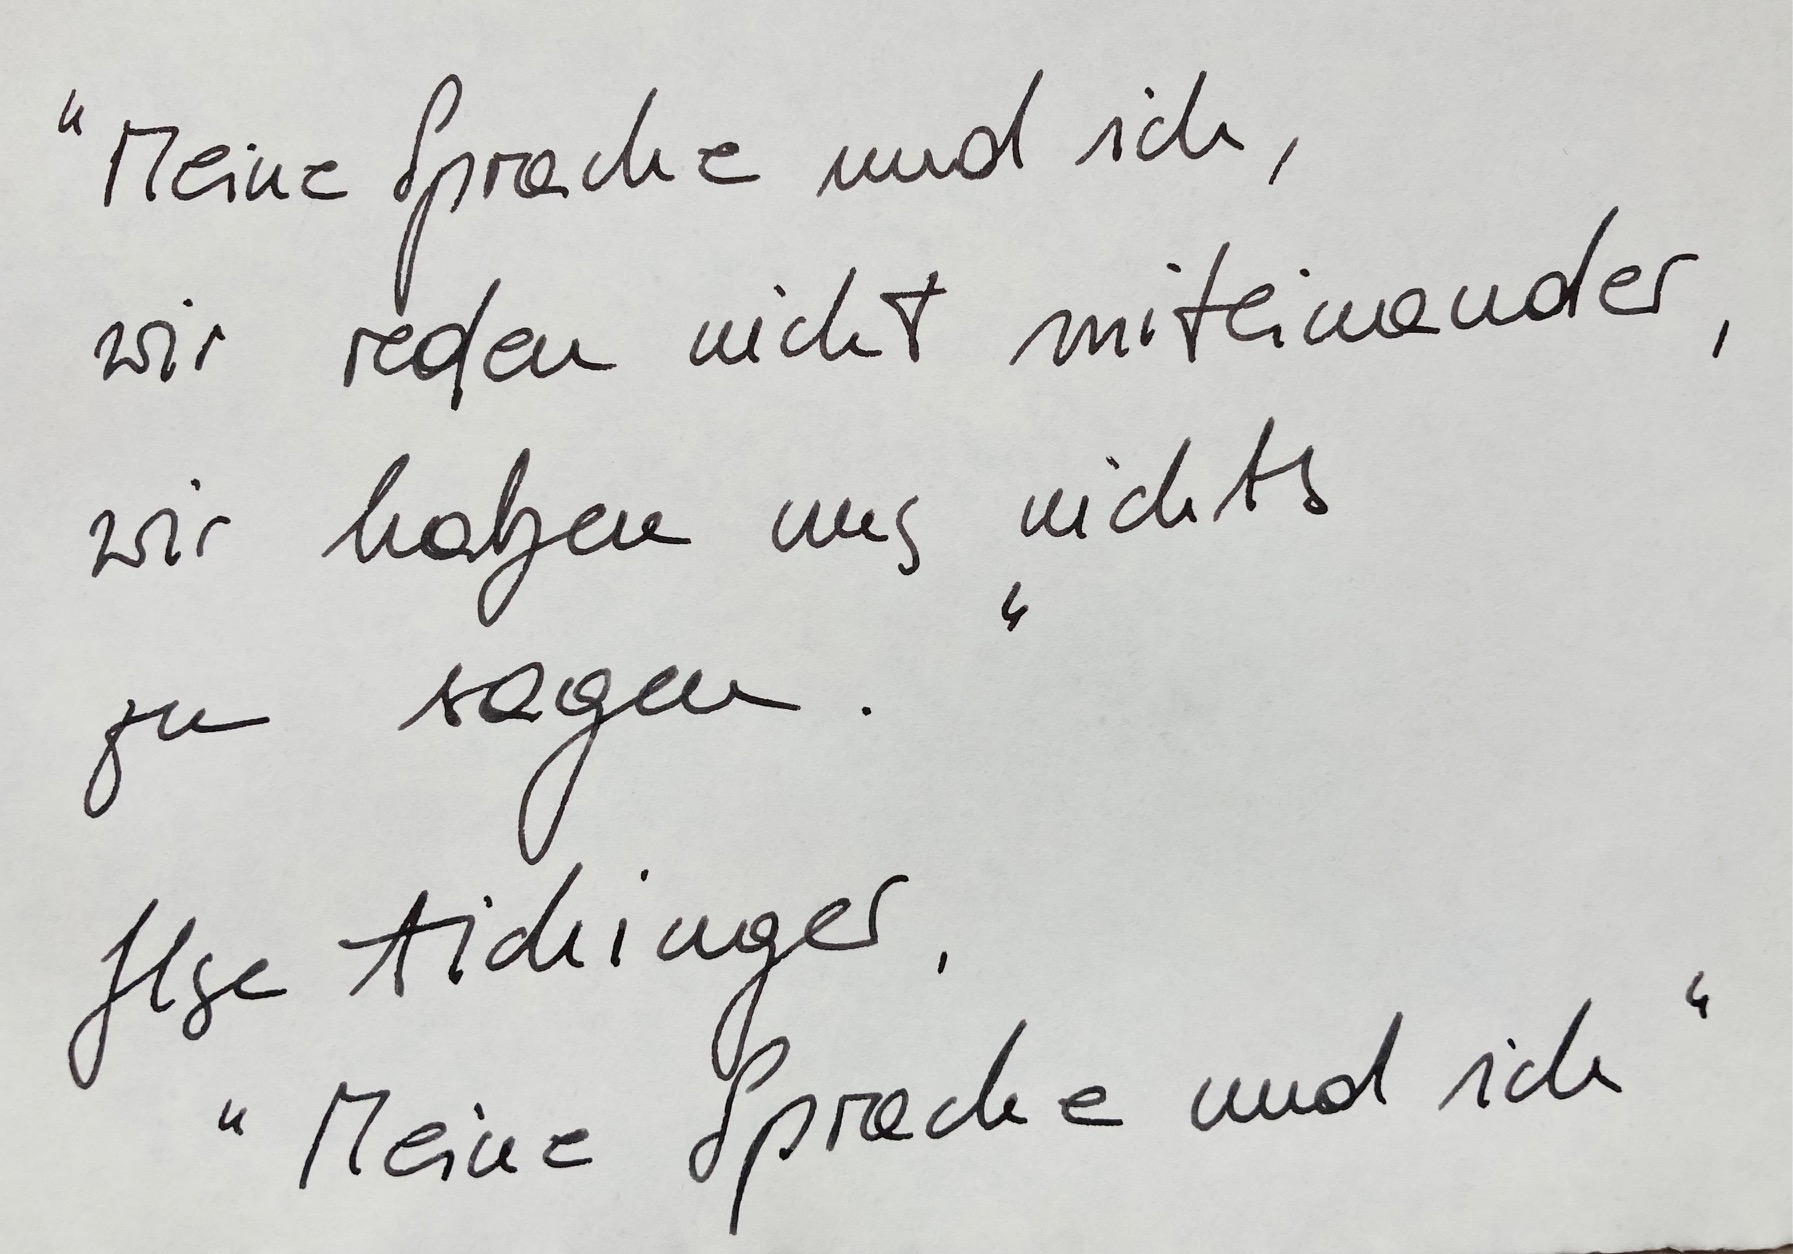 "Meine Sprache und ich,
wir reden nicht miteinander,
wir haben uns nichts
zu sagen."
Ilse Aichinger,
"Meine Sprache und ich"